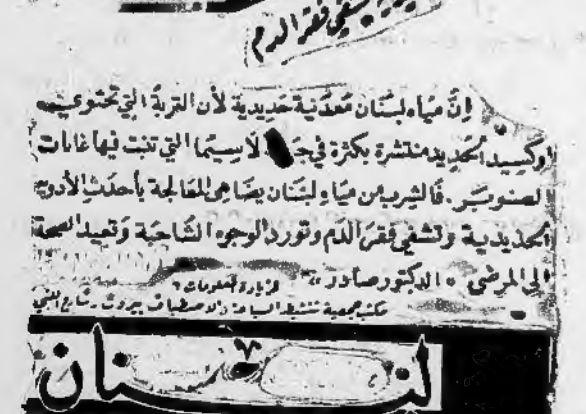 يشفي فقر الدم
إنّ مياه لبنان معدنية حديدية لأن التربة التي تحتوي
اوكسيد الحديد منتشرة بكثرة في لا سيما التي تنبت فيها غابات
الصنوبر. فالشرب من مياه لبنان يضاهي المعالجة بأحدث الأدوية
الحديدية وتشفي فقر الدم وتورد الوجوه الشاحبة وتعيد الصحة
إلى المرضى الدكتور صادر
لزيادة المعلومات
مكتب جمعية تنشيط السياحة والاصطياف بيروت شارع
لبنان